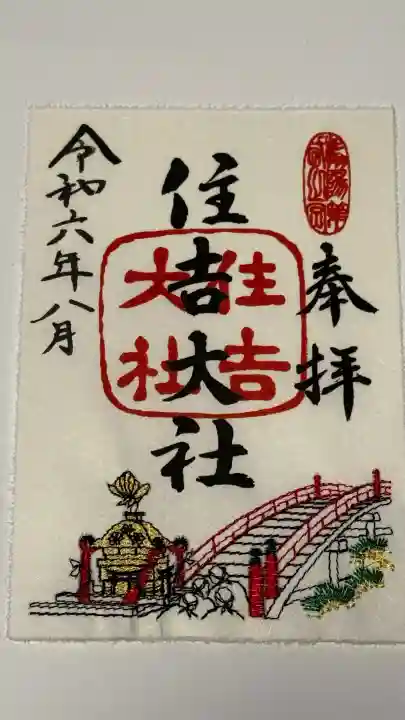 奉拝
住吉大社
住吉
大社
令和六年八月